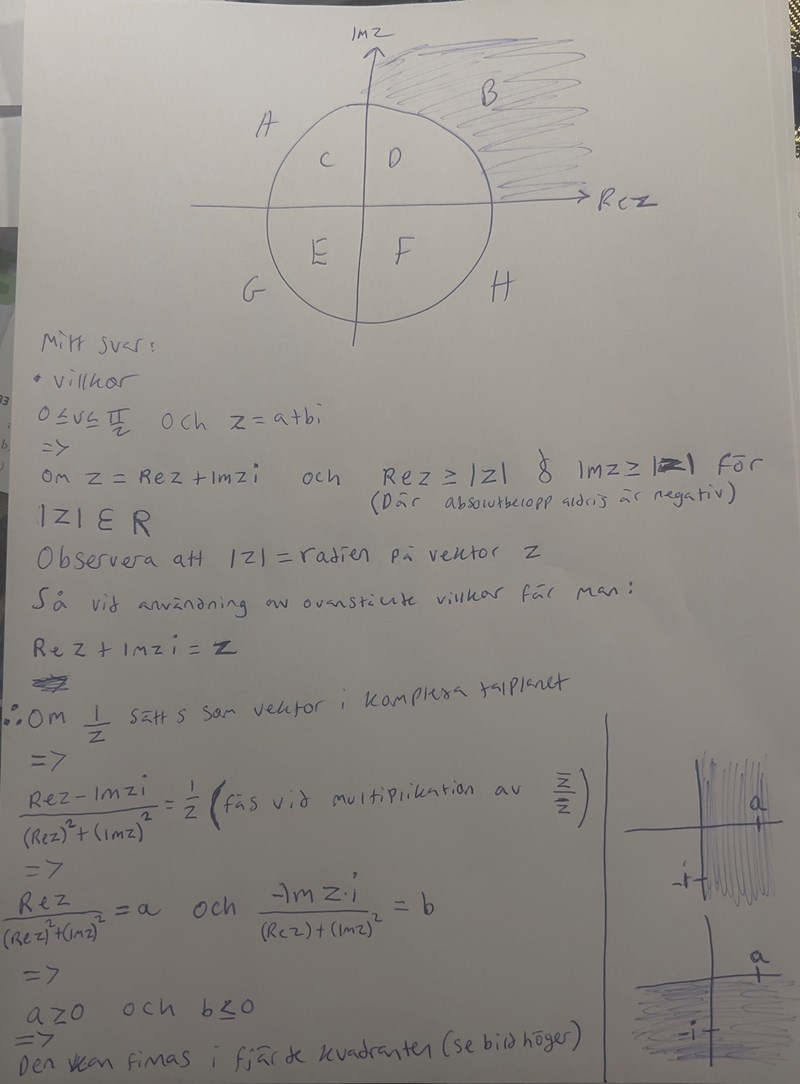 Im z
A
B
C
D
Re z
E
F
G
H
Mitt svar:
• villkor
0 ≤ v ≤ π/2 och z = a+bi
=>
Om z = Re z + Im z i och Re z ≥ |z| & Im z ≥ |z| för
(Där absolutbelopp aldrig är negativ)
|z| ∈ R
Observera att |z| = radien på vektor z
Så vid användning av ovanstående villkor får man:
Re z + Im z i = z
∴ Om 1/z sätts som vektor i komplexa talplanet
=>
(Re z - Im z i)/((Re z)² + (Im z)²) = 1/z (fås vid multiplikation av z̄/z̄)
=>
Re z/((Re z)² + (Im z)²) = a och -Im z · i/((Re z) + (Im z)²) = b
=>
a ≥ 0 och b ≤ 0
=>
Den kan finnas i fjärde kvadranten (se bild höger)
a
-i
a
-i